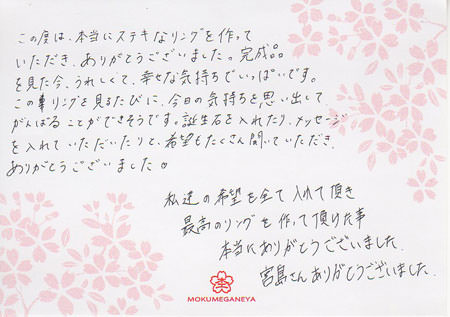 この度は、本当にステキなリングを作って
いただき、ありがとうございました。完成品
を見た今、うれしくて、幸せな気持ちでいっぱいです。
このリングを見るたびに、今日の気持ちを思い出して
がんばることができそうです。誕生石を入れたり、メッセージ
を入れていただいたりと、希望もたくさん聞いていただき、
ありがとうございました。
私達の希望を全て入れて頂き
最高のリングを作って頂けた事
本当にありがとうございました。
宮島さんありがとうございました。
MOKUMEGANEYA